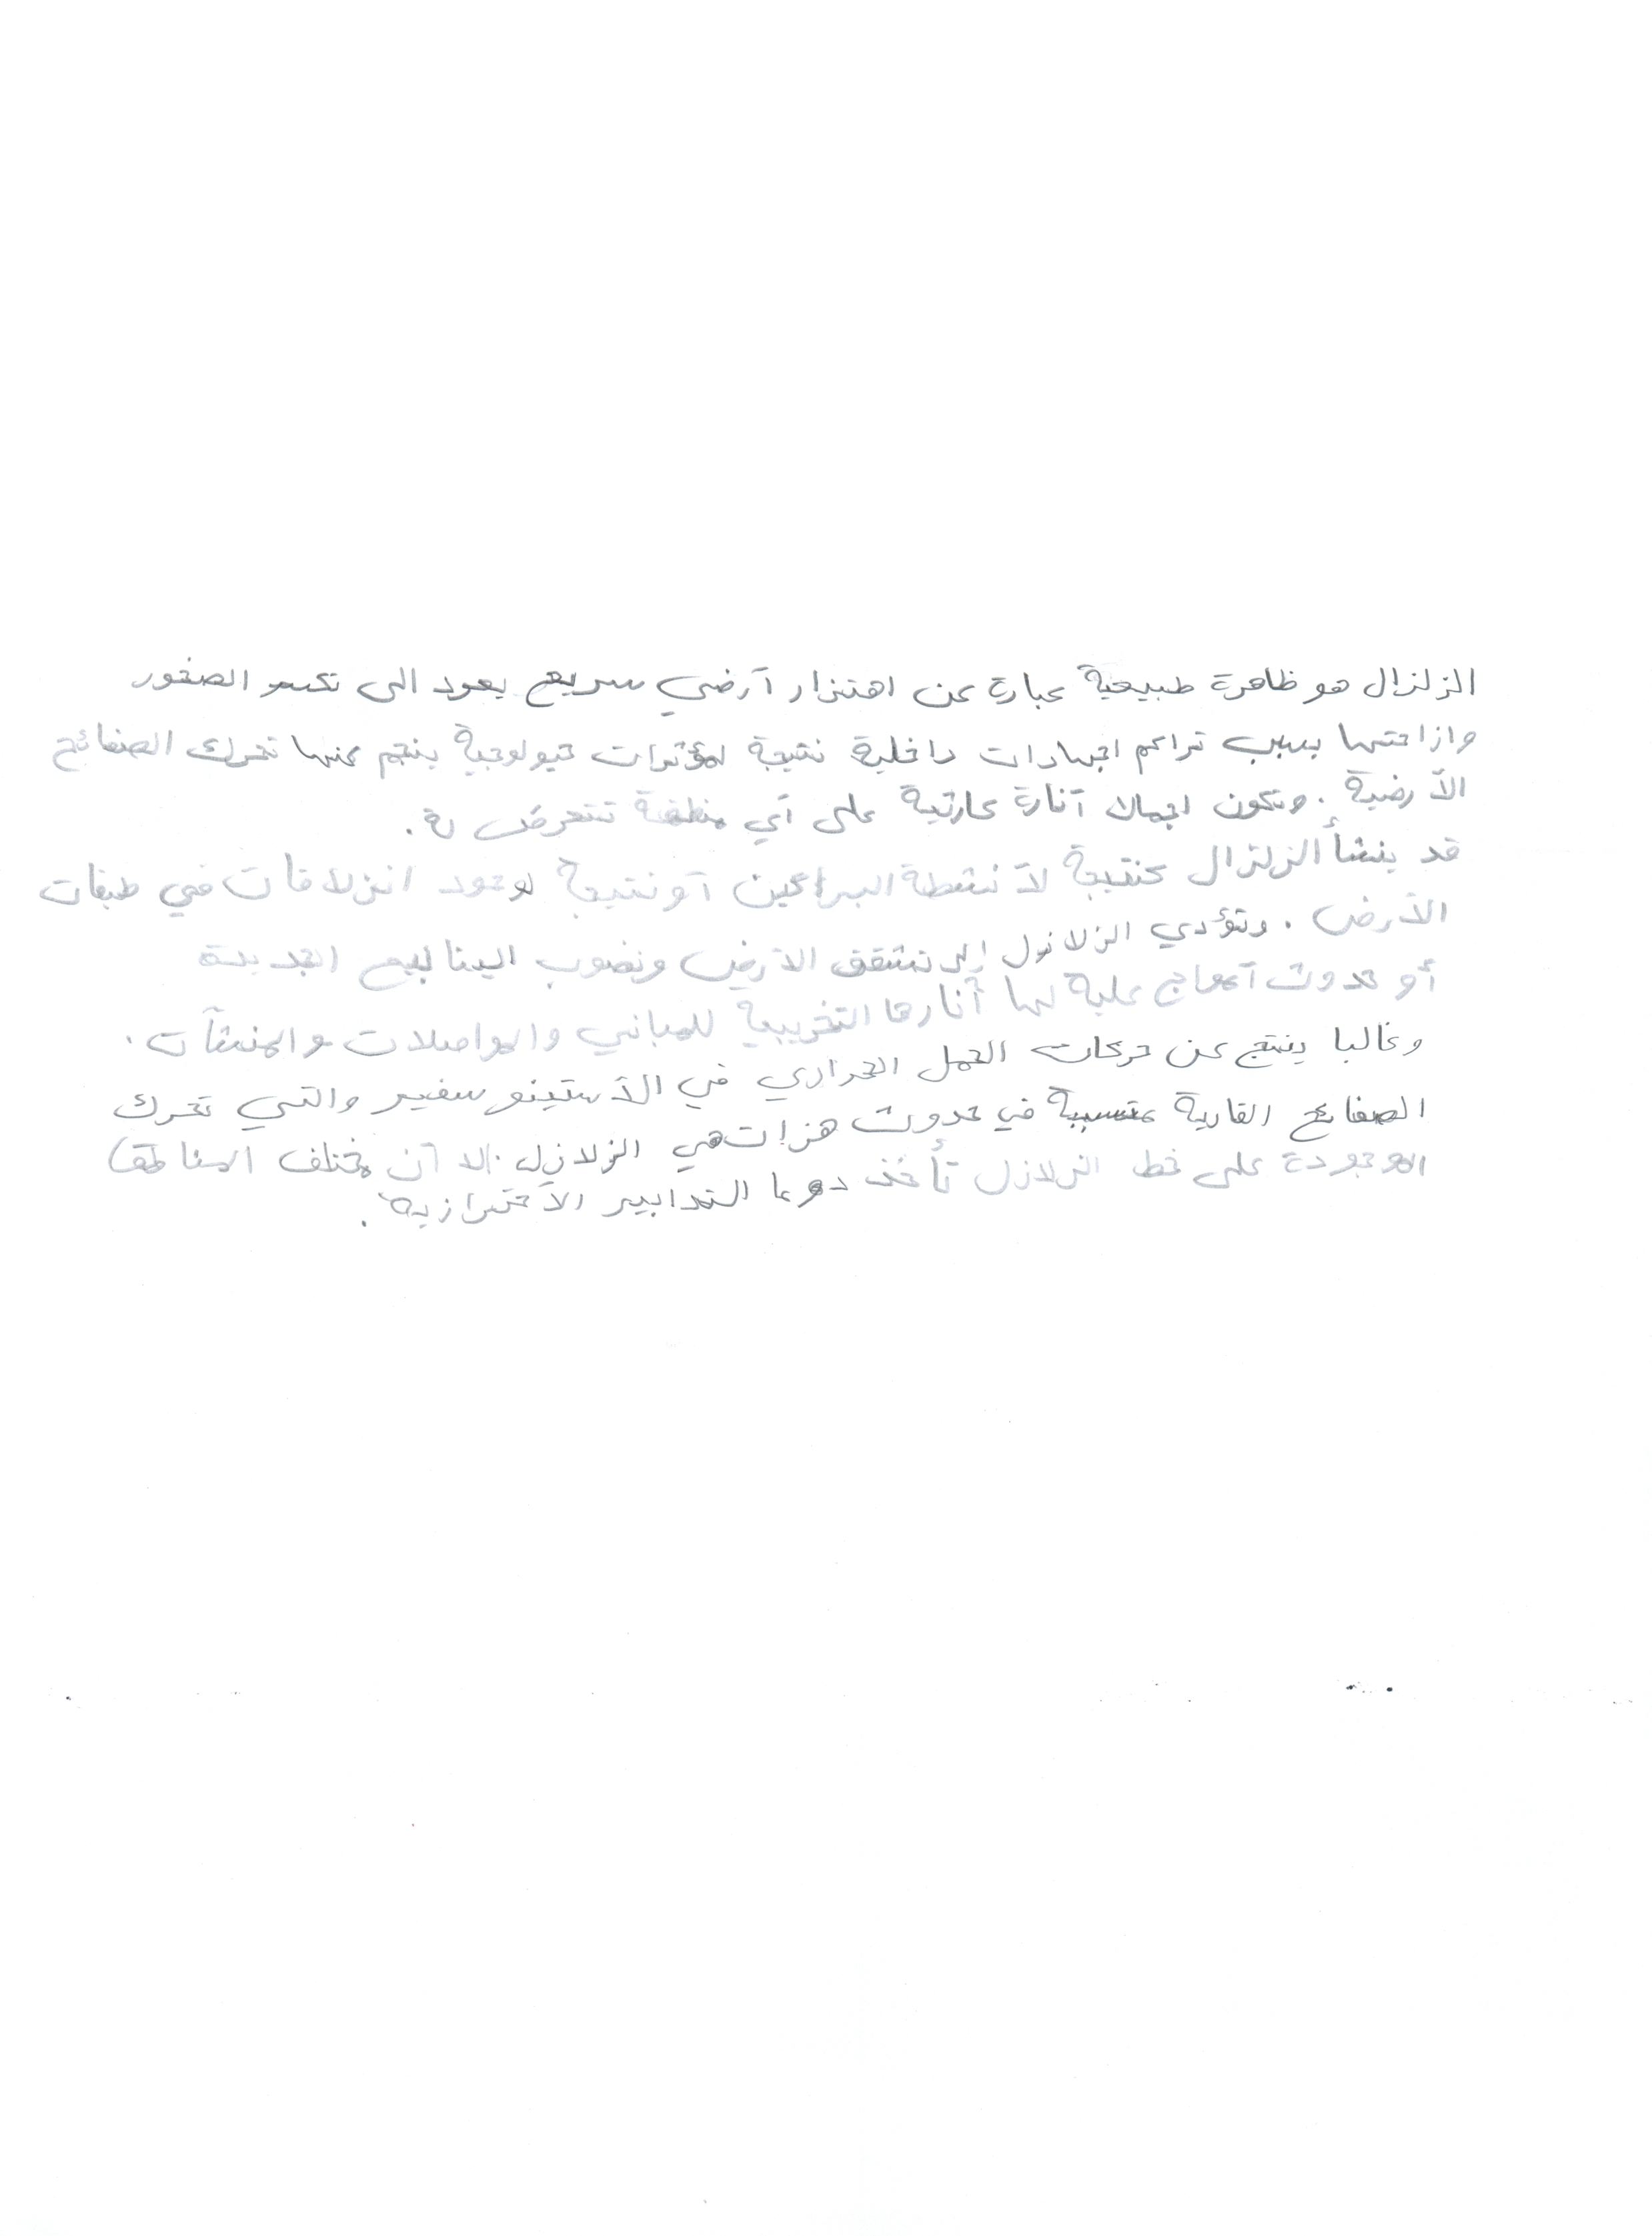 الزلزال هو ظاهرة طبيعية عبارة عن اهتزاز أرضي سريع يعود الى تكسر الصخور
وازاحتها بسبب تراكم اجهادات داخلية نتيجة لمؤثرات جيولوجية ينجم عنها تحرك الصفائح
الأرضية . وتكون اجمالا آثارة كارثية على أي منطقة تتعرض لة .
قد ينشأ الزلزال كنتيجة لأنشطة البراكين أو نتيجة لوجود انزلاقات في طبقات
الأرض . وتؤدي الزلازل إلى تشقق الأرض ونضوب الينابيع الجديدة
أو حدوث أمواج علية لها أثارها التخريبية للمباني والمواصلات والمنشآت .
وغالبا ينتج عن حركات الحمل الحراري في الأستينوسفير والتي تحرك
الصفائح القارية متسببة في حدوث هزات هي الزلازل . الا أن مختلف المناطق
الموجودة على خط الزلازل تأخذ دوما التدابير الأحترازية .